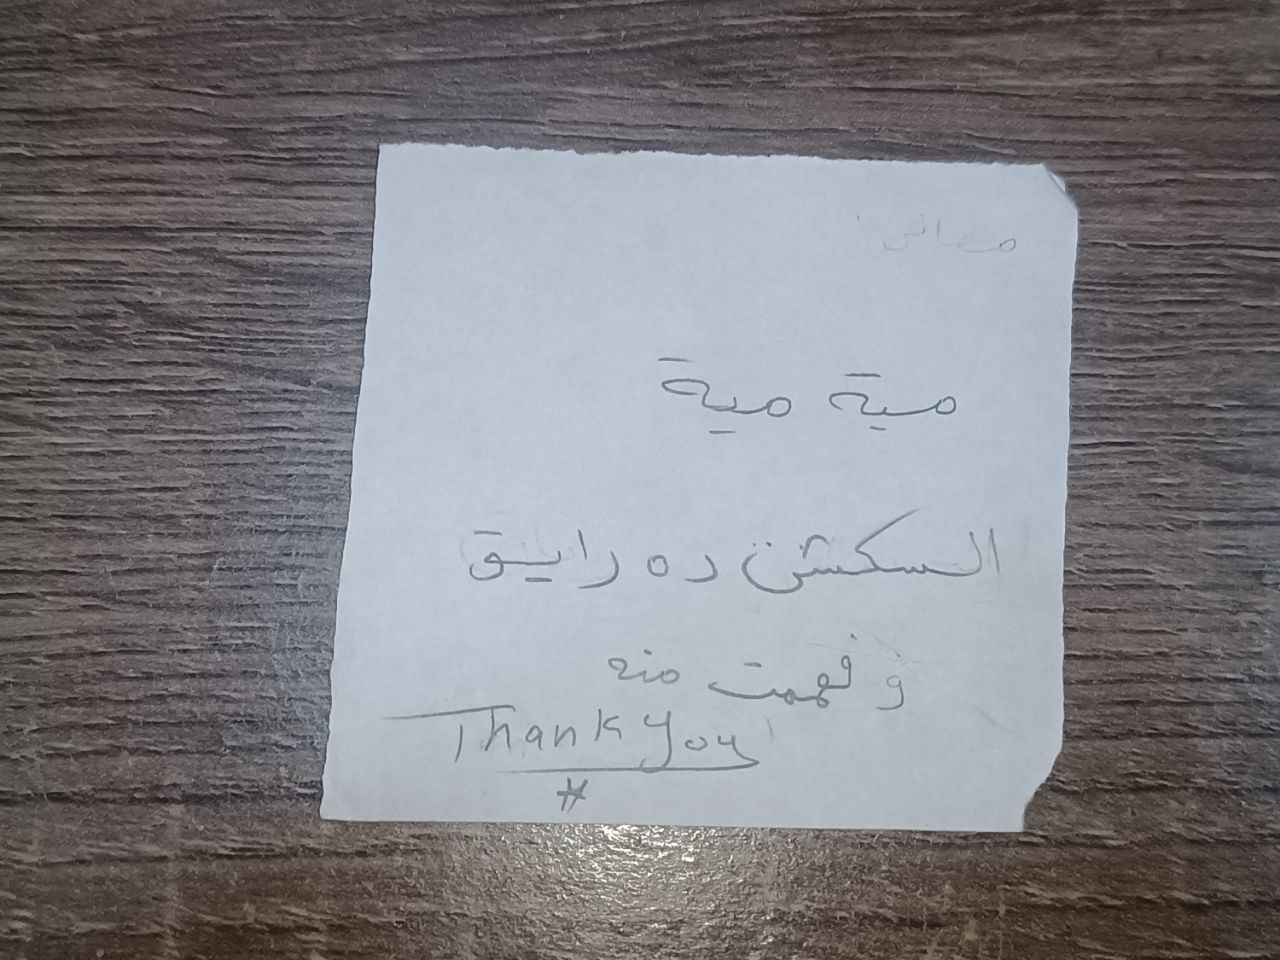 مية مية
السكشن ده رايق
و فهمت منه
Thank you